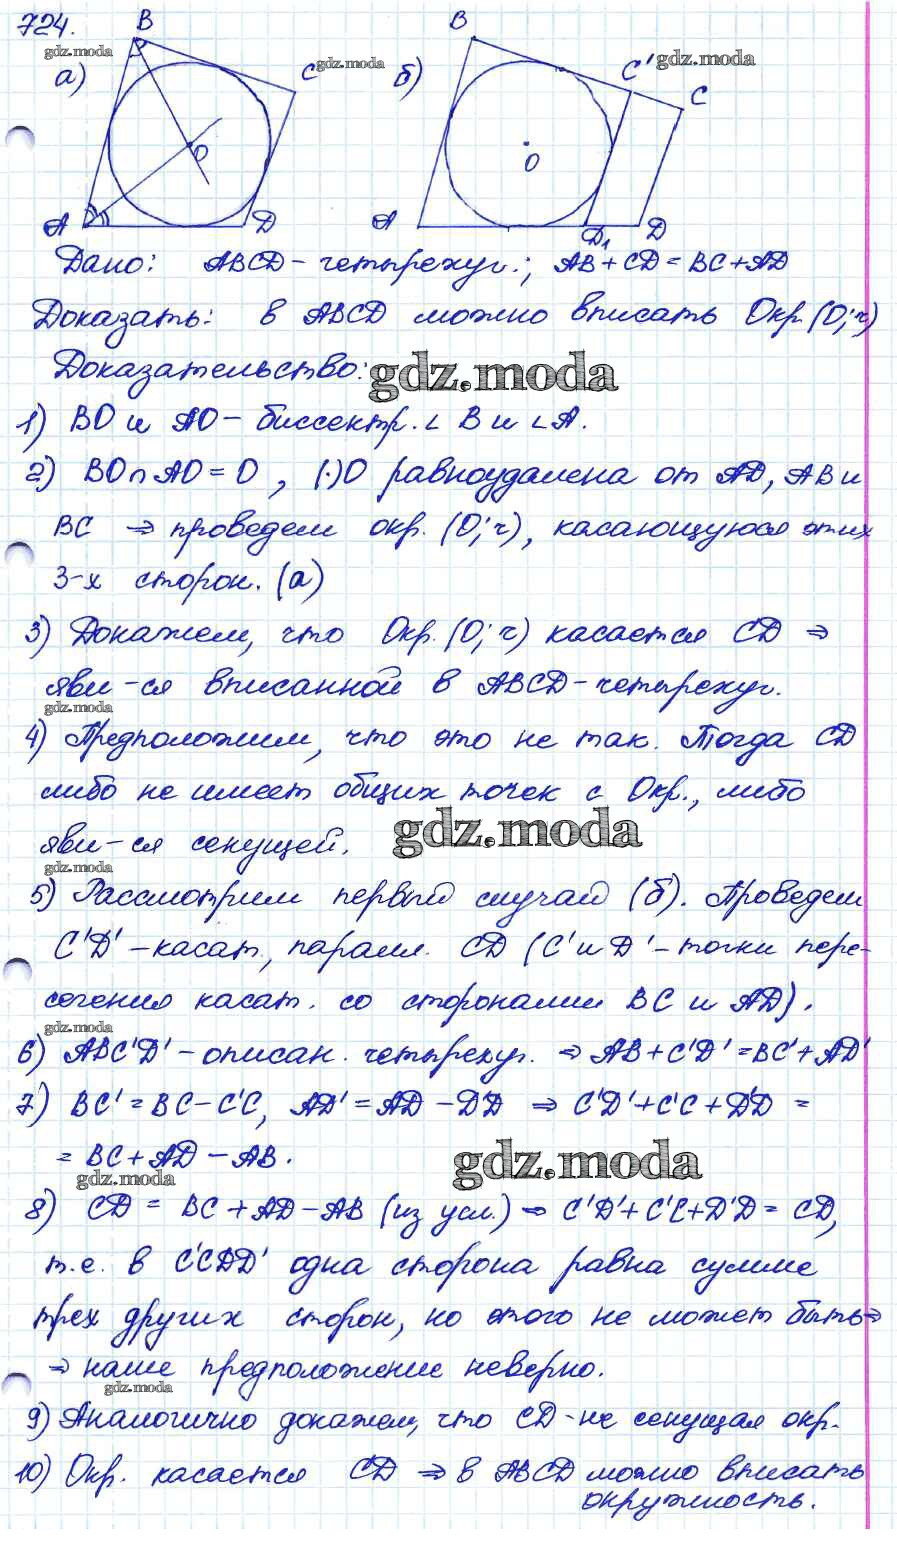 724.
B
B
gdz.moda
а)
C
gdz.moda
б)
C'
gdz.moda
C
O
O
A
D
A
D₁
D
Дано: ABCD – четырехуг.; AB + CD = BC + AD
Доказать: в ABCD можно вписать Окр.(O; r)
Доказательство:
gdz.moda
1) BO и AO – биссектр. ∠ B и ∠A.
2) BO ∩ AO = O , (·)O равноудалена от AD, AB и
BC ⇒ проведем окр. (O; r), касающуюся этих
3-х сторон. (а)
3) Докажем, что Окр.(O; r) касается CD ⇒
явл-ся вписанной в ABCD – четырехуг.
gdz.moda
4) Предположим, что это не так. Тогда CD
либо не имеет общих точек с Окр., либо
явл-ся секущей.
gdz.moda
gdz.moda
5) Рассмотрим первый случай (б). Проведем
C'D' – касат., паралл. CD (C' и D' – точки пере-
сечения касат. со сторонами BC и AD).
gdz.moda
6) ABC'D' – описан. четырехуг. ⇒ AB + C'D' = BC' + AD'
7) BC' = BC – C'C, AD' = AD – D'D ⇒ C'D' + C'C + D'D =
= BC + AD – AB.
gdz.moda
gdz.moda
8) CD = BC + AD – AB (из усл.) ⇒ C'D' + C'C + D'D = CD,
т.е. в C'CDD' одна сторона равна сумме
трех других сторон, но этого не может быть ⇒
⇒ наше предположение неверно.
gdz.moda
9) Аналогично докажем, что CD – не секущая окр.
10) Окр. касается CD ⇒ в ABCD можно вписать
окружность.